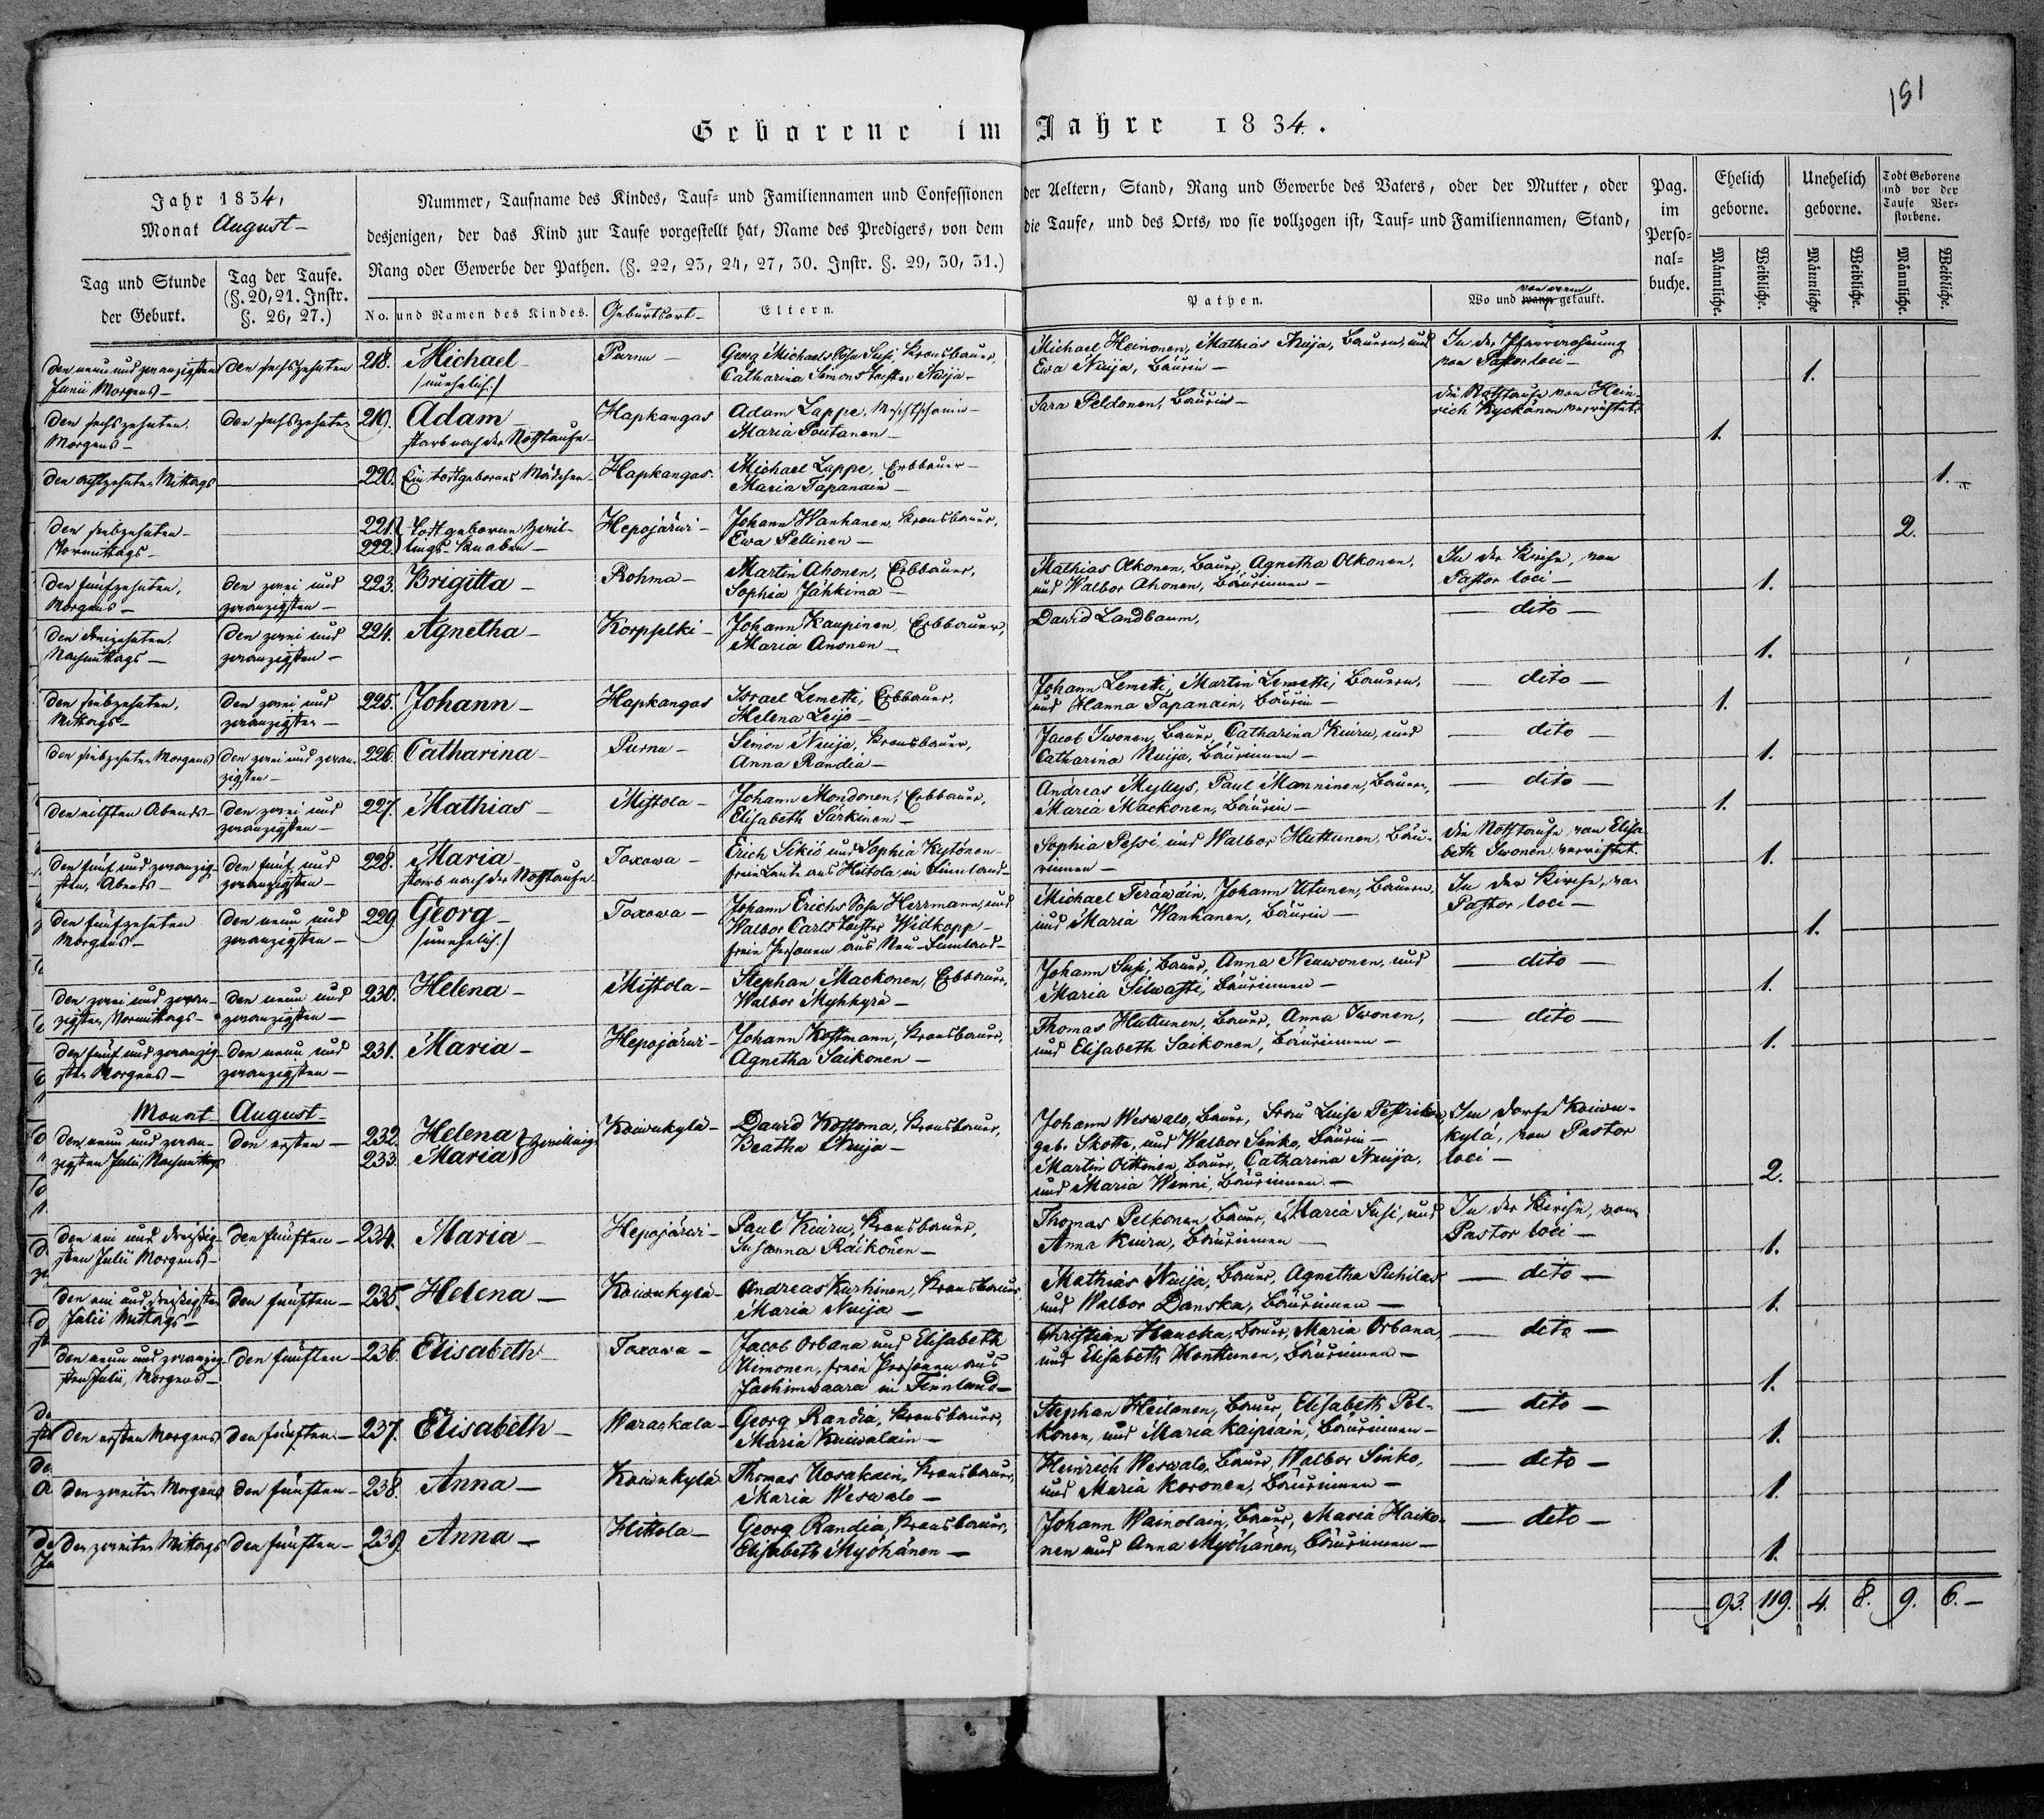 151
Geborene im Jahre 1834.
Jahr 1834,
Monat August
Tag und Stunde
der Geburt.
Tag der Taufe.
(§. 20, 21. Instr.
§. 26, 27.)
Nummer, Taufname des Kindes, Tauf- und Familiennamen und Confessionen der Aeltern, Stand, Rang und Gewerbe des Vaters, oder der Mutter, oder
desjenigen, der das Kind zur Taufe vorgestellt hat, Name des Predigers, von dem die Taufe, und des Orts, wo sie vollzogen ist, Tauf- und Familiennamen, Stand,
Rang oder Gewerbe der Pathen. (§. 22, 23, 24, 27, 30. Instr. §. 29, 30, 31.)
No. und Namen des Kindes. Geburtsort Eltern. Pathen. Wo und von wem getauft.
Pag.
im
Perso-
nal-
buche.
Ehelich
geborne.
Männliche. Weibliche.
Unehelich
geborne.
Männliche Weibliche.
Todt Geborene
und vor der
Taufe Ver-
storbene.
Männliche. Weibliche.
den neun und zwanzigsten den sechszehnten 218. Michael Purnu Georg Michaels Sohn Susi, Kronsbauer, Michael Heinonen, Mathias Nuija, Bauern, und In der Pfarrwohnung
Junii Morgens (unehelich) Catharina Simons Tochter Nuija Ewa Nuija, Bäurin von Pastor loci 1.
den sechszehnten den sechszehnten 219. Adam Hapkangas Adam Lappe, Sara Peldonen, Bäurin die Nothtaufe von Hein-
Morgens starb nach der Nothtaufe Maria Poutanen rich Kyckönen verrichtet 1.
den achtzehnten Mittags 220. Ein todtgebornes Mädchen Hapkangas. Michael Lappe, Erbbauer
Maria Tapanain 1.
den siebzehnten 221. Todtgeborne Zwil- Hepojärwi Johann Wanhanen, Kronsbauer,
Vormittags 222. lings-Knaben Ewa Pellinen 2.
den fünfzehnten, den zwei und 223. Brigitta Rohma Martin Ahonen, Erbbauer, Mathias Olkonen, Bauer, Agnetha Olkonen, In der Kirche, von
Morgens zwanzigsten Sophia Jähkimä und Walbor Ahonen, Bäurinnen Pastor loci 1.
den dreizehnten, den zwei und 224. Agnetha Korpselki Johann Kaupinen, Erbbauer, Dawid Landbaum, dito
Nachmittags zwanzigsten Maria Anonen 1.
den siebzehnten, den zwei und 225. Johann Hapkangas Israel Lemetti, Erbbauer, Johann Lemetti, Martin Lemetti, Bauern, dito
Mittags zwanzigsten Helena Leijo und Hanna Tapanain, Bäurin 1.
den siebzehnten Morgens den zwei und zwan- 226. Catharina Purnu Simon Nuija, Kronsbauer, Jacob Iwonen, Bauer, Catharina Kuiru, und dito
zigsten Anna Randia Catharina Nuija, Bäurinnen 1.
den eilften Abends den zwei und 227. Mathias Mistola Johann Mondonen, Erbbauer, Andreas Myllys, Paul Manninen, Bauern, dito
zwanzigsten Elisabeth Särkinen Maria Mackonen, Bäurin 1.
den fünf und zwanzig- den fünf und 228. Maria Toxowa Erich Sikiö und Sophia Kytönen Sophia Pessi und Walbor Huttunen, Bäu- die Nothtaufe von Elisa-
sten, Abends zwanzigsten starb nach der Nothtaufe freie Leute aus Hiitola in Finnland rinnen beth Iwonen verrichtet. 1.
den fünfzehnten den neun und 229. Georg Toxowa Johann Erichs Sohn Herrmann, und Michael Teräwäin, Johann Utunen, Bauern, In der Kirche, von
Morgens zwanzigsten (unehelich) Walbor Carls Tochter Widkopp und Maria Wanhanen, Bäurin Pastor loci 1.
freie Personen aus Neu-Finnland
den zwei und zwan- den neun und 230. Helena Mistola Stephan Mackonen, Erbbauer, Johann Susi, Bauer, Anna Neuwonen, und dito
zigsten Vormittags zwanzigsten Walbor Myhkyrä Maria Silwasti, Bäurinnen 1.
den fünf und zwanzig- den neun und 231. Maria Hepojärwi Johann Kostmann, Kronsbauer, Thomas Huttunen, Bauer, Anna Iwonen, dito
sten Morgens zwanzigsten Agnetha Saikonen und Elisabeth Saikonen, Bäurinnen 1.
Monat August
den neun und zwan- den ersten 232. Helena Zwillinge Koiwukylä Dawid Kottoma, Kronsbauer, Johann Weswalo, Bauer, Frau Luise Im Dorfe Koiwu-
zigsten Julii Nachmittags 233. Maria Beatha Nuija geb. Skotte, und Walbor Sinko, Bäurin kylä, von Pastor
Martin Oittinen, Bauer, Catharina Nuija, loci
und Maria Winni, Bäurinnen. 2.
den ein und dreißig- den fünften 234. Maria Hepojärwi Paul Kuiru, Kronsbauer, Thomas Pelkonen, Bauer, Maria Susi, und In der Kirche, von
sten Julii Morgens Susanna Räikönen Anna Kuiru, Bäurinnen Pastor loci 1.
den ein und dreißigsten den fünften 235. Helena Koiwukylä Andreas Kurhinen, Kronsbauer, Mathias Nuija, Bauer, Agnetha Puhilas dito
Julii Mittags Maria Nuija und Walbor Danska, Bäurinnen 1.
den neun und zwanzig- den fünften 236. Elisabeth Toxowa Jacob Orbana und Elisabeth Christian Haucka, Bauer, Maria Orbana, dito
sten Julii, Morgens Nimonen, freie Personen aus und Elisabeth Honttunen, Bäurinnen
Jachimwaara in Finnland 1.
den ersten Morgens den fünften 237. Elisabeth Waraskala Georg Randia, Kronsbauer, Stephan Heilanen, Bauer, Elisabeth Pel- dito
Maria Kuiwalain konen, und Maria Kaipiain, Bäurinnen 1.
den zweiten Morgens den fünften 238. Anna Koiwukylä Thomas Uosakain, Kronsbauer, Heinrich Weswalo, Bauer, Walbor Sinko, dito
Maria Weswalo und Maria Koronen, Bäurinnen 1.
den zweiten Mittags den fünften 239. Anna Hittola Georg Randia, Kronsbauer, Johann Wainolain, Bauer, Maria Haiko- dito
Elisabeth Myöhänen nen und Anna Myöhänen, Bäurinnen 1.
93. 119. 4. 8. 9. 6.